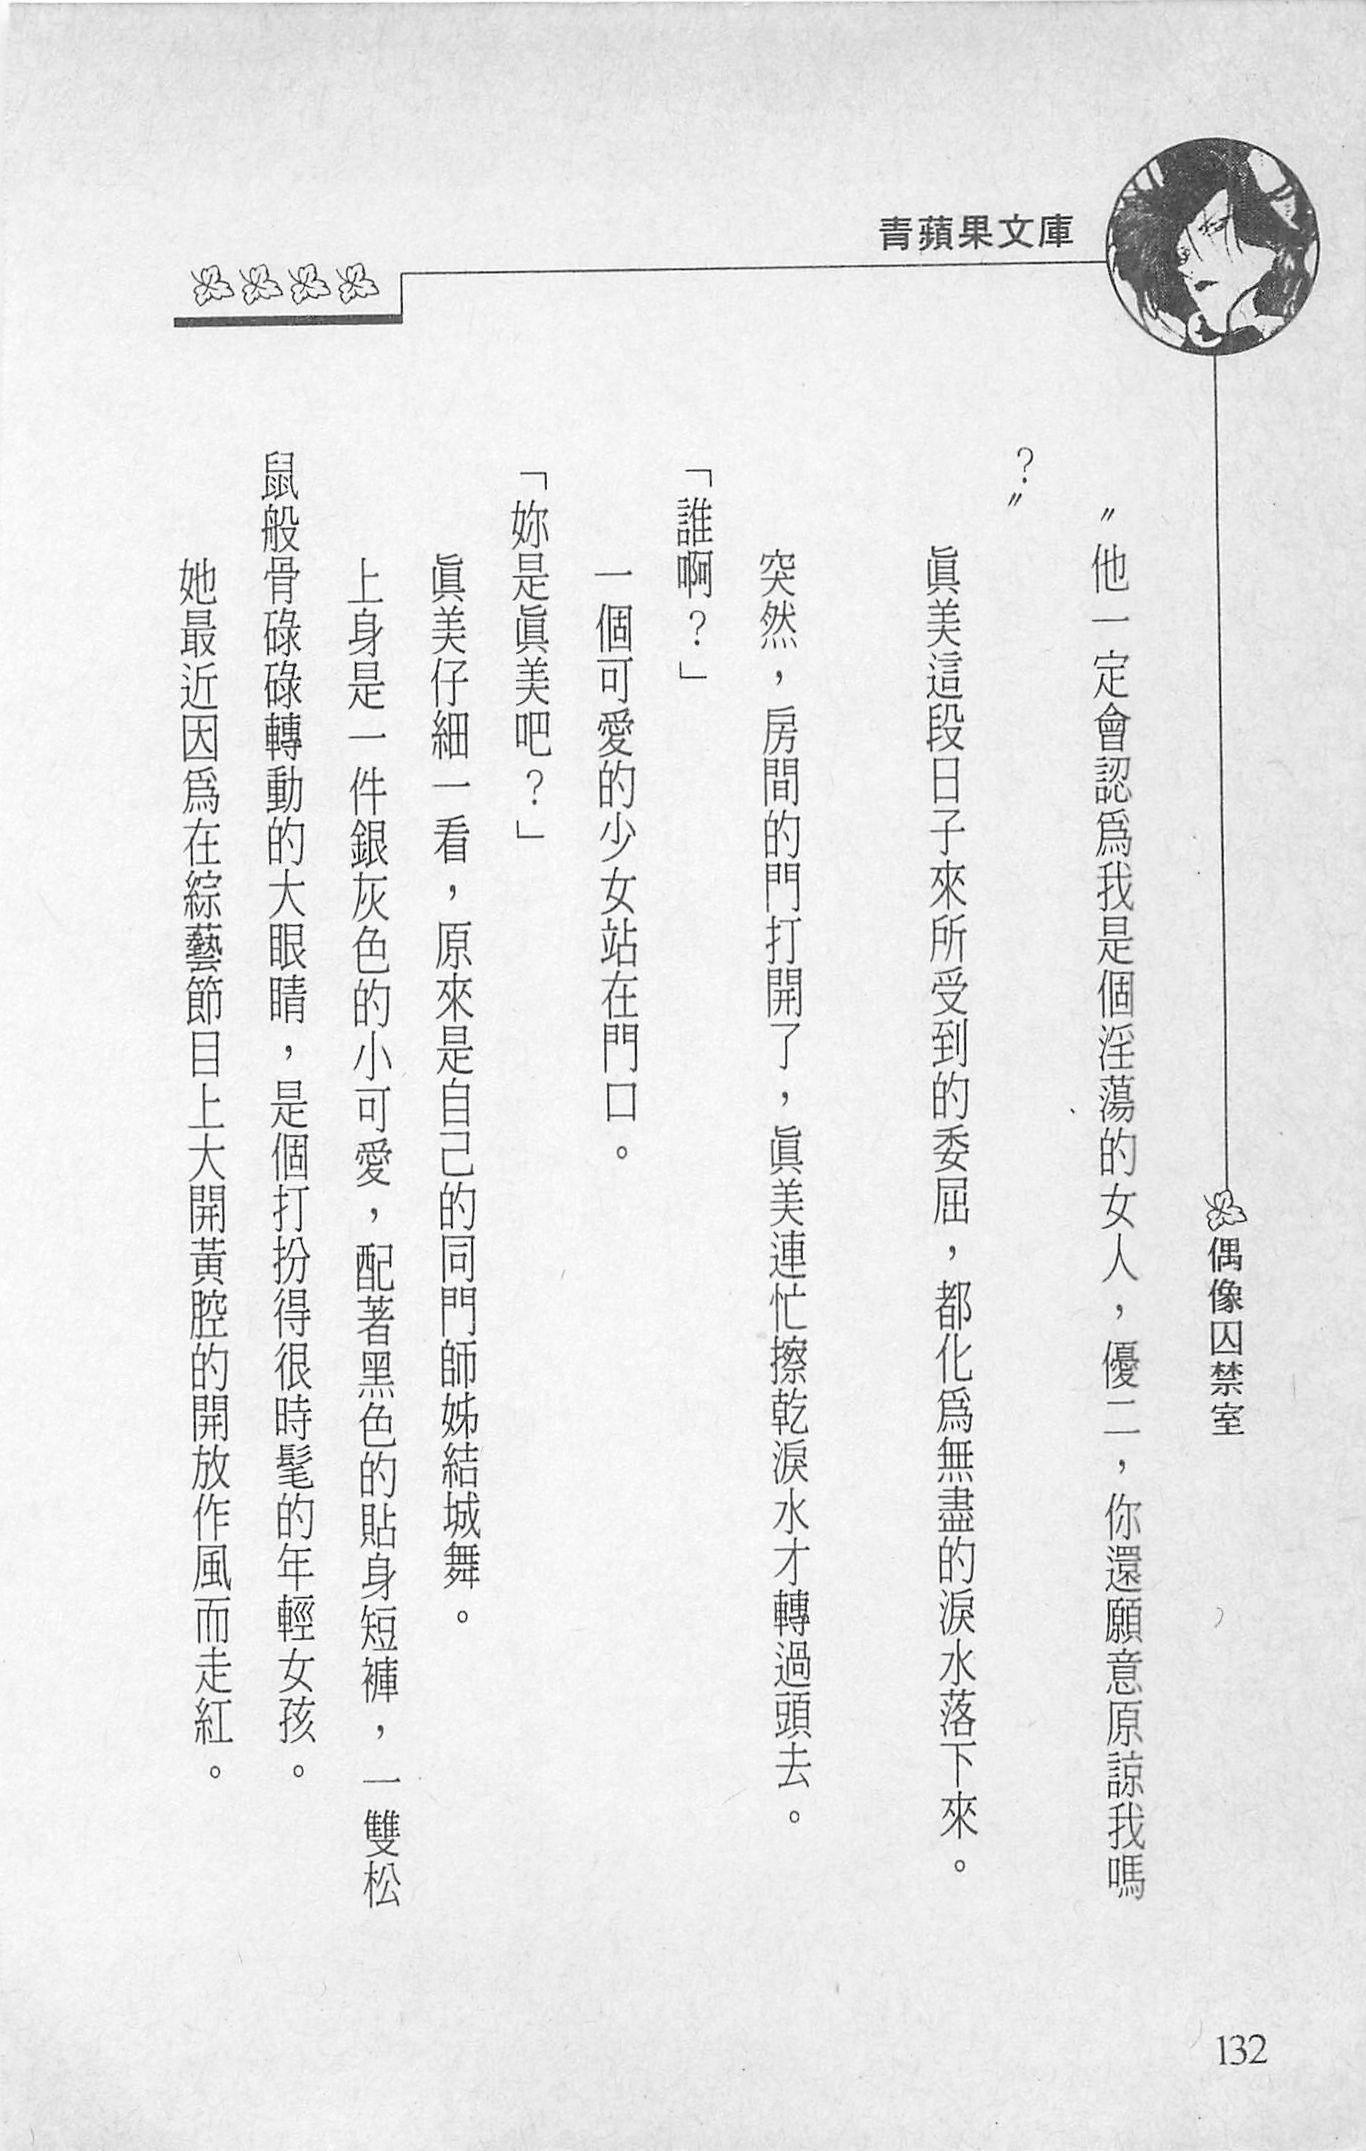 青蘋果文庫
偶像囚禁室
〝他一定會認爲我是個淫蕩的女人，優二，你還願意原諒我嗎
？〞
眞美這段日子來所受到的委屈，都化爲無盡的淚水落下來。
突然，房間的門打開了，眞美連忙擦乾淚水才轉過頭去。
「誰啊？」
一個可愛的少女站在門口。
「妳是眞美吧？」
眞美仔細一看，原來是自己的同門師姊結城舞。
上身是一件銀灰色的小可愛，配著黑色的貼身短褲，一雙松
鼠般骨碌碌轉動的大眼睛，是個打扮得很時髦的年輕女孩。
她最近因爲在綜藝節目上大開黃腔的開放作風而走紅。
132